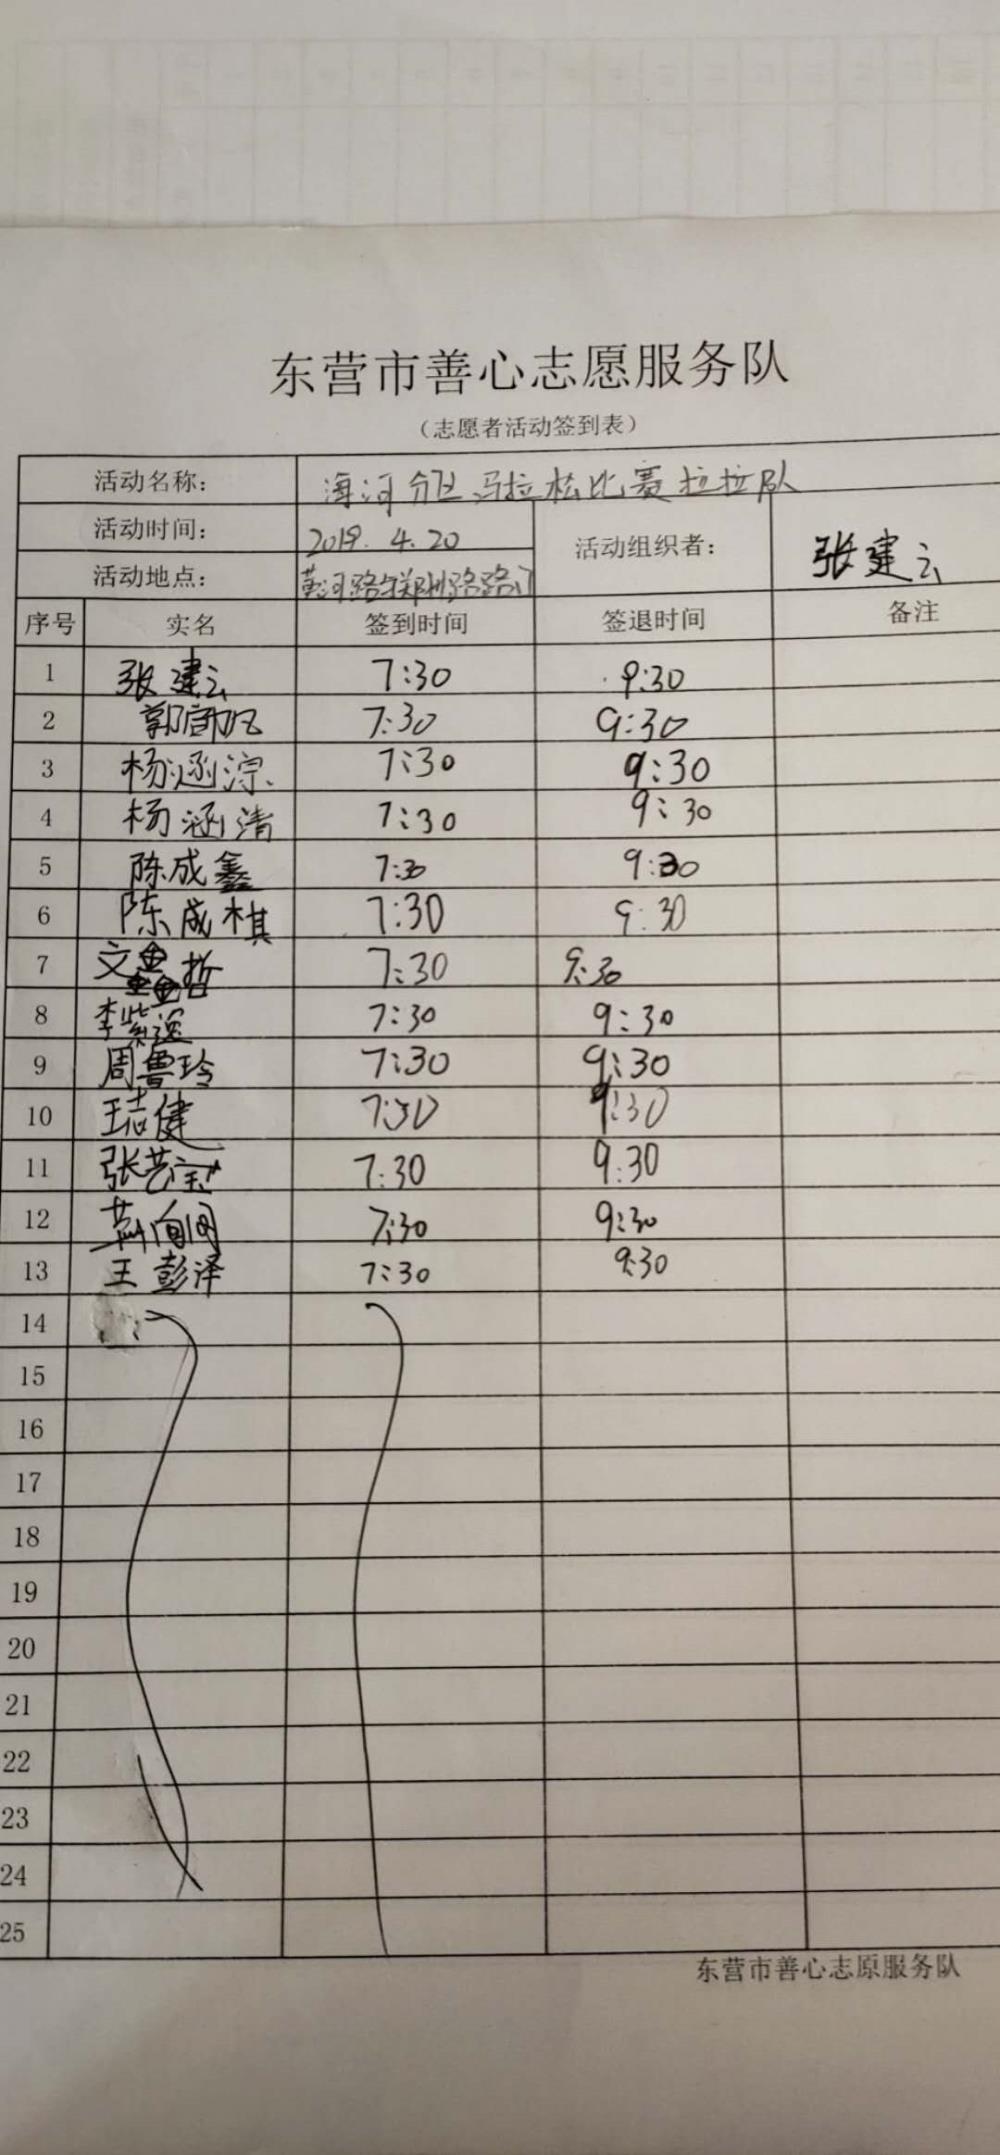 东营市善心志愿服务队
（志愿者活动签到表）
活动名称： 海河分区马拉松比赛拉拉队
活动时间： 2019.4.20 活动组织者： 张建云
活动地点： 黄河路与郑州路路口
序号 实名 签到时间 签退时间 备注
1 张建云 7:30 9:30
2 7:30 9:30
3 杨涵淙 7:30 9:30
4 杨涵清 7:30 9:30
5 陈成鑫 7:30 9:30
6 陈成棋 7:30 9:30
7 文鑫哲 7:30 9:30
8 李紫 7:30 9:30
9 周鲁玲 7:30 9:30
10 健 7:30 9:30
11 张艺宝 7:30 9:30
12 7:30 9:30
13 王彭泽 7:30 9:30
14
15
16
17
18
19
20
21
22
23
24
25
东营市善心志原服务队